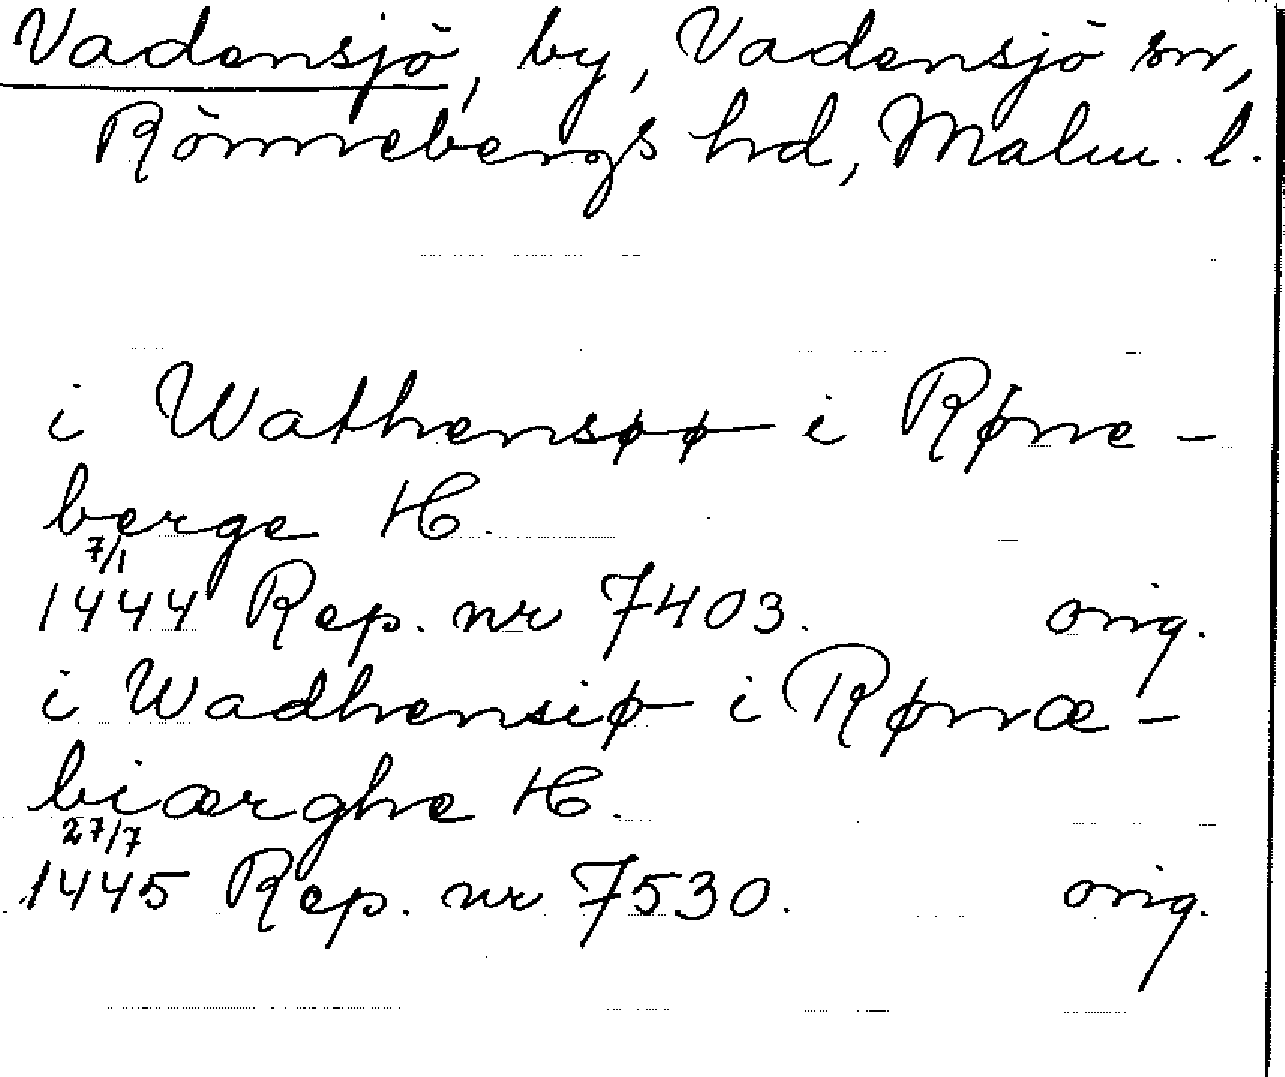 Vadensjö, by, Vadensjö sn,
Rönnebergs hd, Malm. l.
i Wathensøø i Røne-
berge H.
7/1
1444 Rep. nr 7403. orig.
i Wadhensiø i Rønæ-
biærghe H.
27/7
1445 Rep. nr 7530. orig.